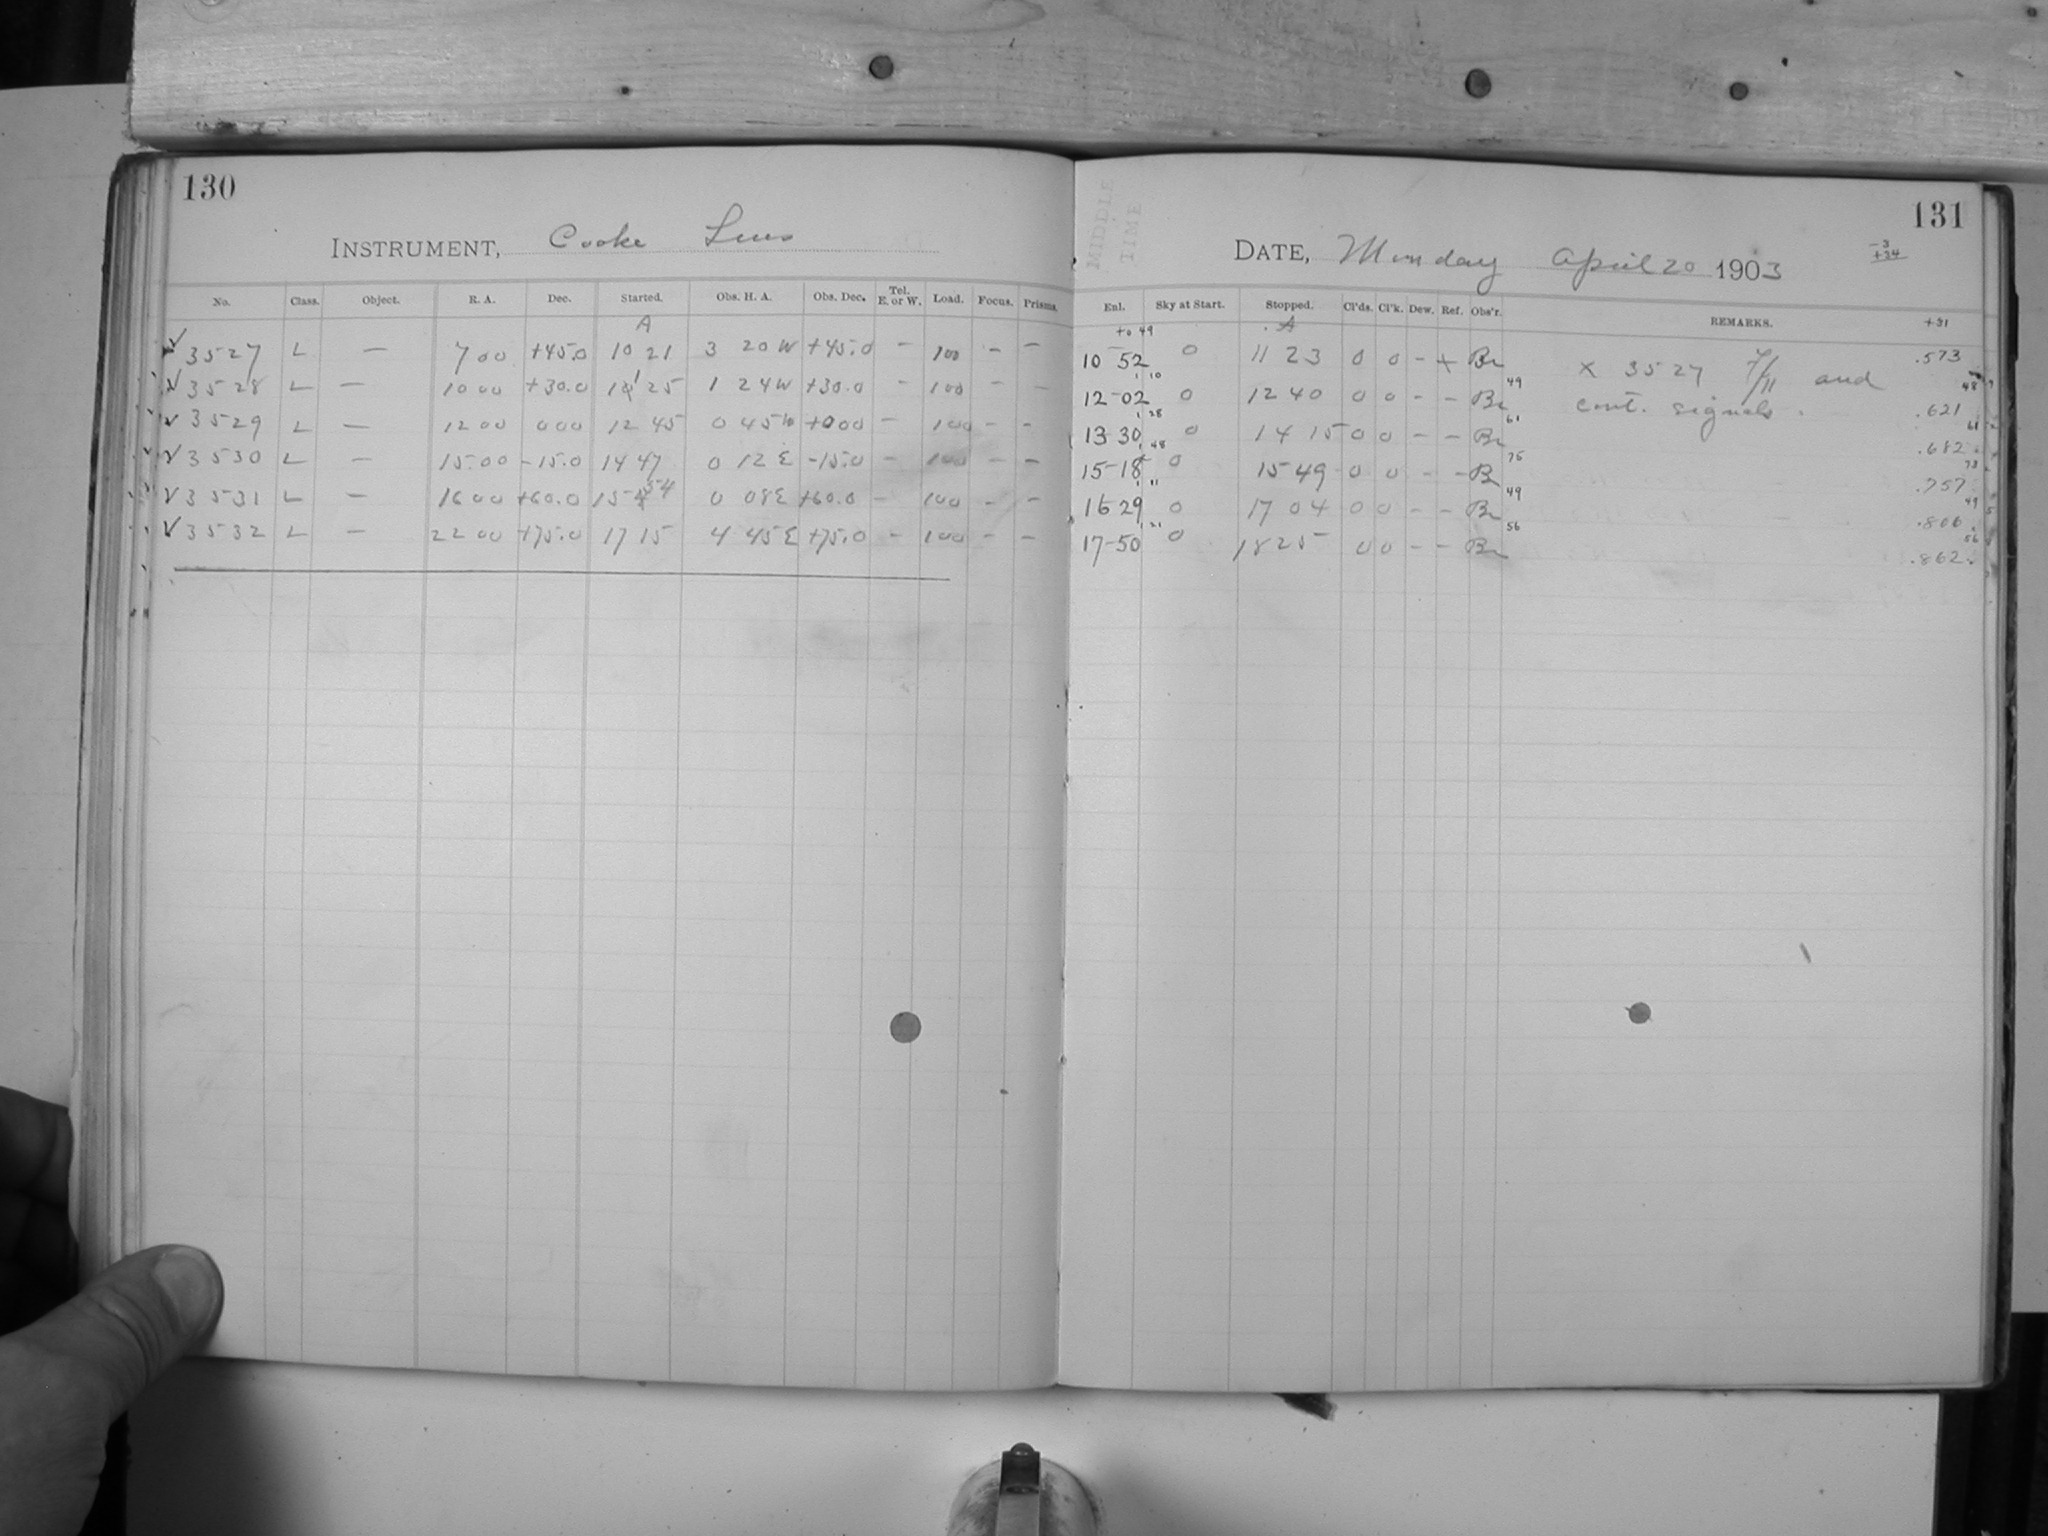 130
INSTRUMENT, Cooke Lens
No. Class. Object. R. A. Dec. Started. Obs. H. A. Obs. Dec. Tel. E. or W. Load. Focus. Prisms.
A
√ 3527 L — 7 00 +45.0 10 21 3 20 W +45.0 – 100 – –
√ 3528 L — 10 00 +30.0 11 25 1 24 W +30.0 – 100 – –
√ 3529 L — 12 00 0 00 12 45 0 45 W +000 – 100 – –
√ 3530 L — 15.00 -15.0 14 47 0 12 E -15.0 – 100 – –
√ 3531 L — 16 00 +60.0 15 54 0 08 E +60.0 – 100 – –
√ 3532 L — 22 00 +75.0 17 15 4 45 E +75.0 – 100 – –
131
MIDDLE
TIME
DATE, Monday April 20 1903
-3
+34
Enl. Sky at Start. Stopped. Cl'ds. Cl'k. Dew. Ref. Obs'r. REMARKS. +31
+0 49 A
10 52 0 11 23 0 0 – + Br x 3527 7/11 and .573
1 10 49 48
12-02 0 12 40 0 0 – – Br cont. signals. .621
1 28 61 61
13 30 0 14 15 0 0 – – Br .682
1 48 75 75
15-18 0 15 49 0 0 – – Br .757
1 11 49 49
16 29 0 17 04 0 0 – – Br .806
1 21 56 56
17-50 0 18 25 0 0 – – Br .862